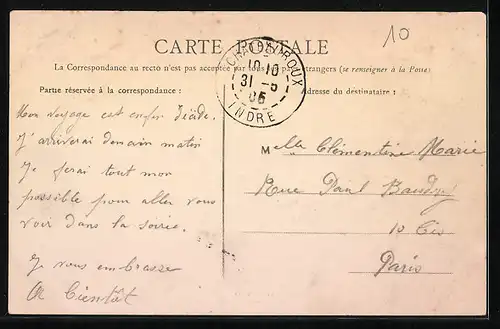 10
CARTE POSTALE
La Correspondance au recto n'est pas acceptée par tous pays étrangers (se renseigner à la Poste)
CHATEAUROUX
10 10
31 - 5
06
INDRE
Partie réservée à la correspondance :
Adresse du destinataire :
Mon voyage est enfin
J'arriverai demain matin
Je ferai tout mon
possible pour aller vous
voir dans la soirée.
Je vous embrasse
A Bientôt
Melle Clémentine Marie
Rue Paul Baudry
10 Cis
Paris